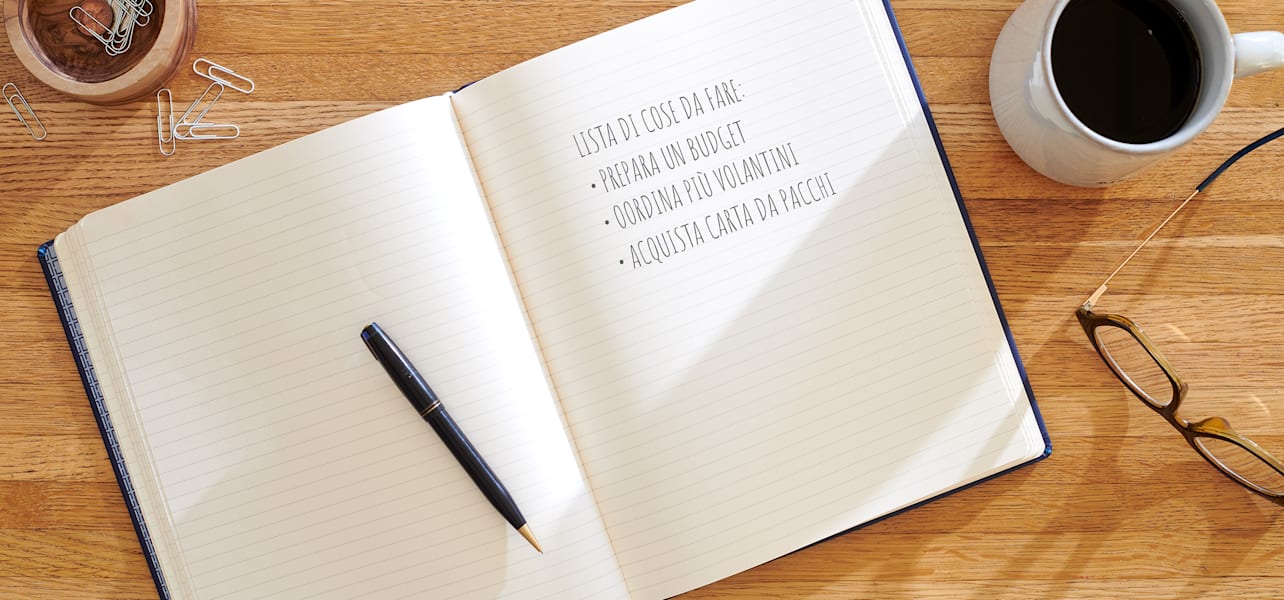 LISTA DI COSE DA FARE:
• PREPARA UN BUDGET
• OORDINA PIÙ VOLANTINI
• ACQUISTA CARTA DA PACCHI